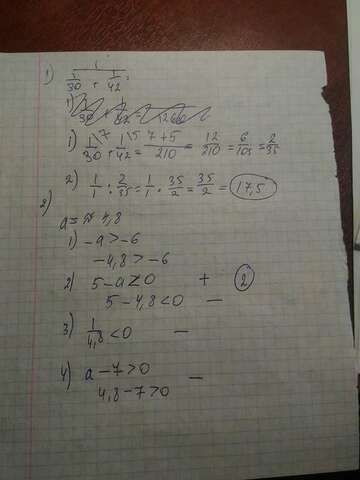 1) 1 / (1/30 + 1/42) =
1) 1/30 + 1/42 = (7+5)/210 = 12/210 = 6/105 = 2/35
2) 1/1 : 2/35 = 1/1 · 35/2 = 35/2 = 17,5
2)
a ≈ 4,8
1) -a > -6
-4,8 > -6
2) 5 - a < 0 + 2
5 - 4,8 < 0 —
3) 1/4,8 < 0 —
4) a - 7 > 0 —
4,8 - 7 > 0